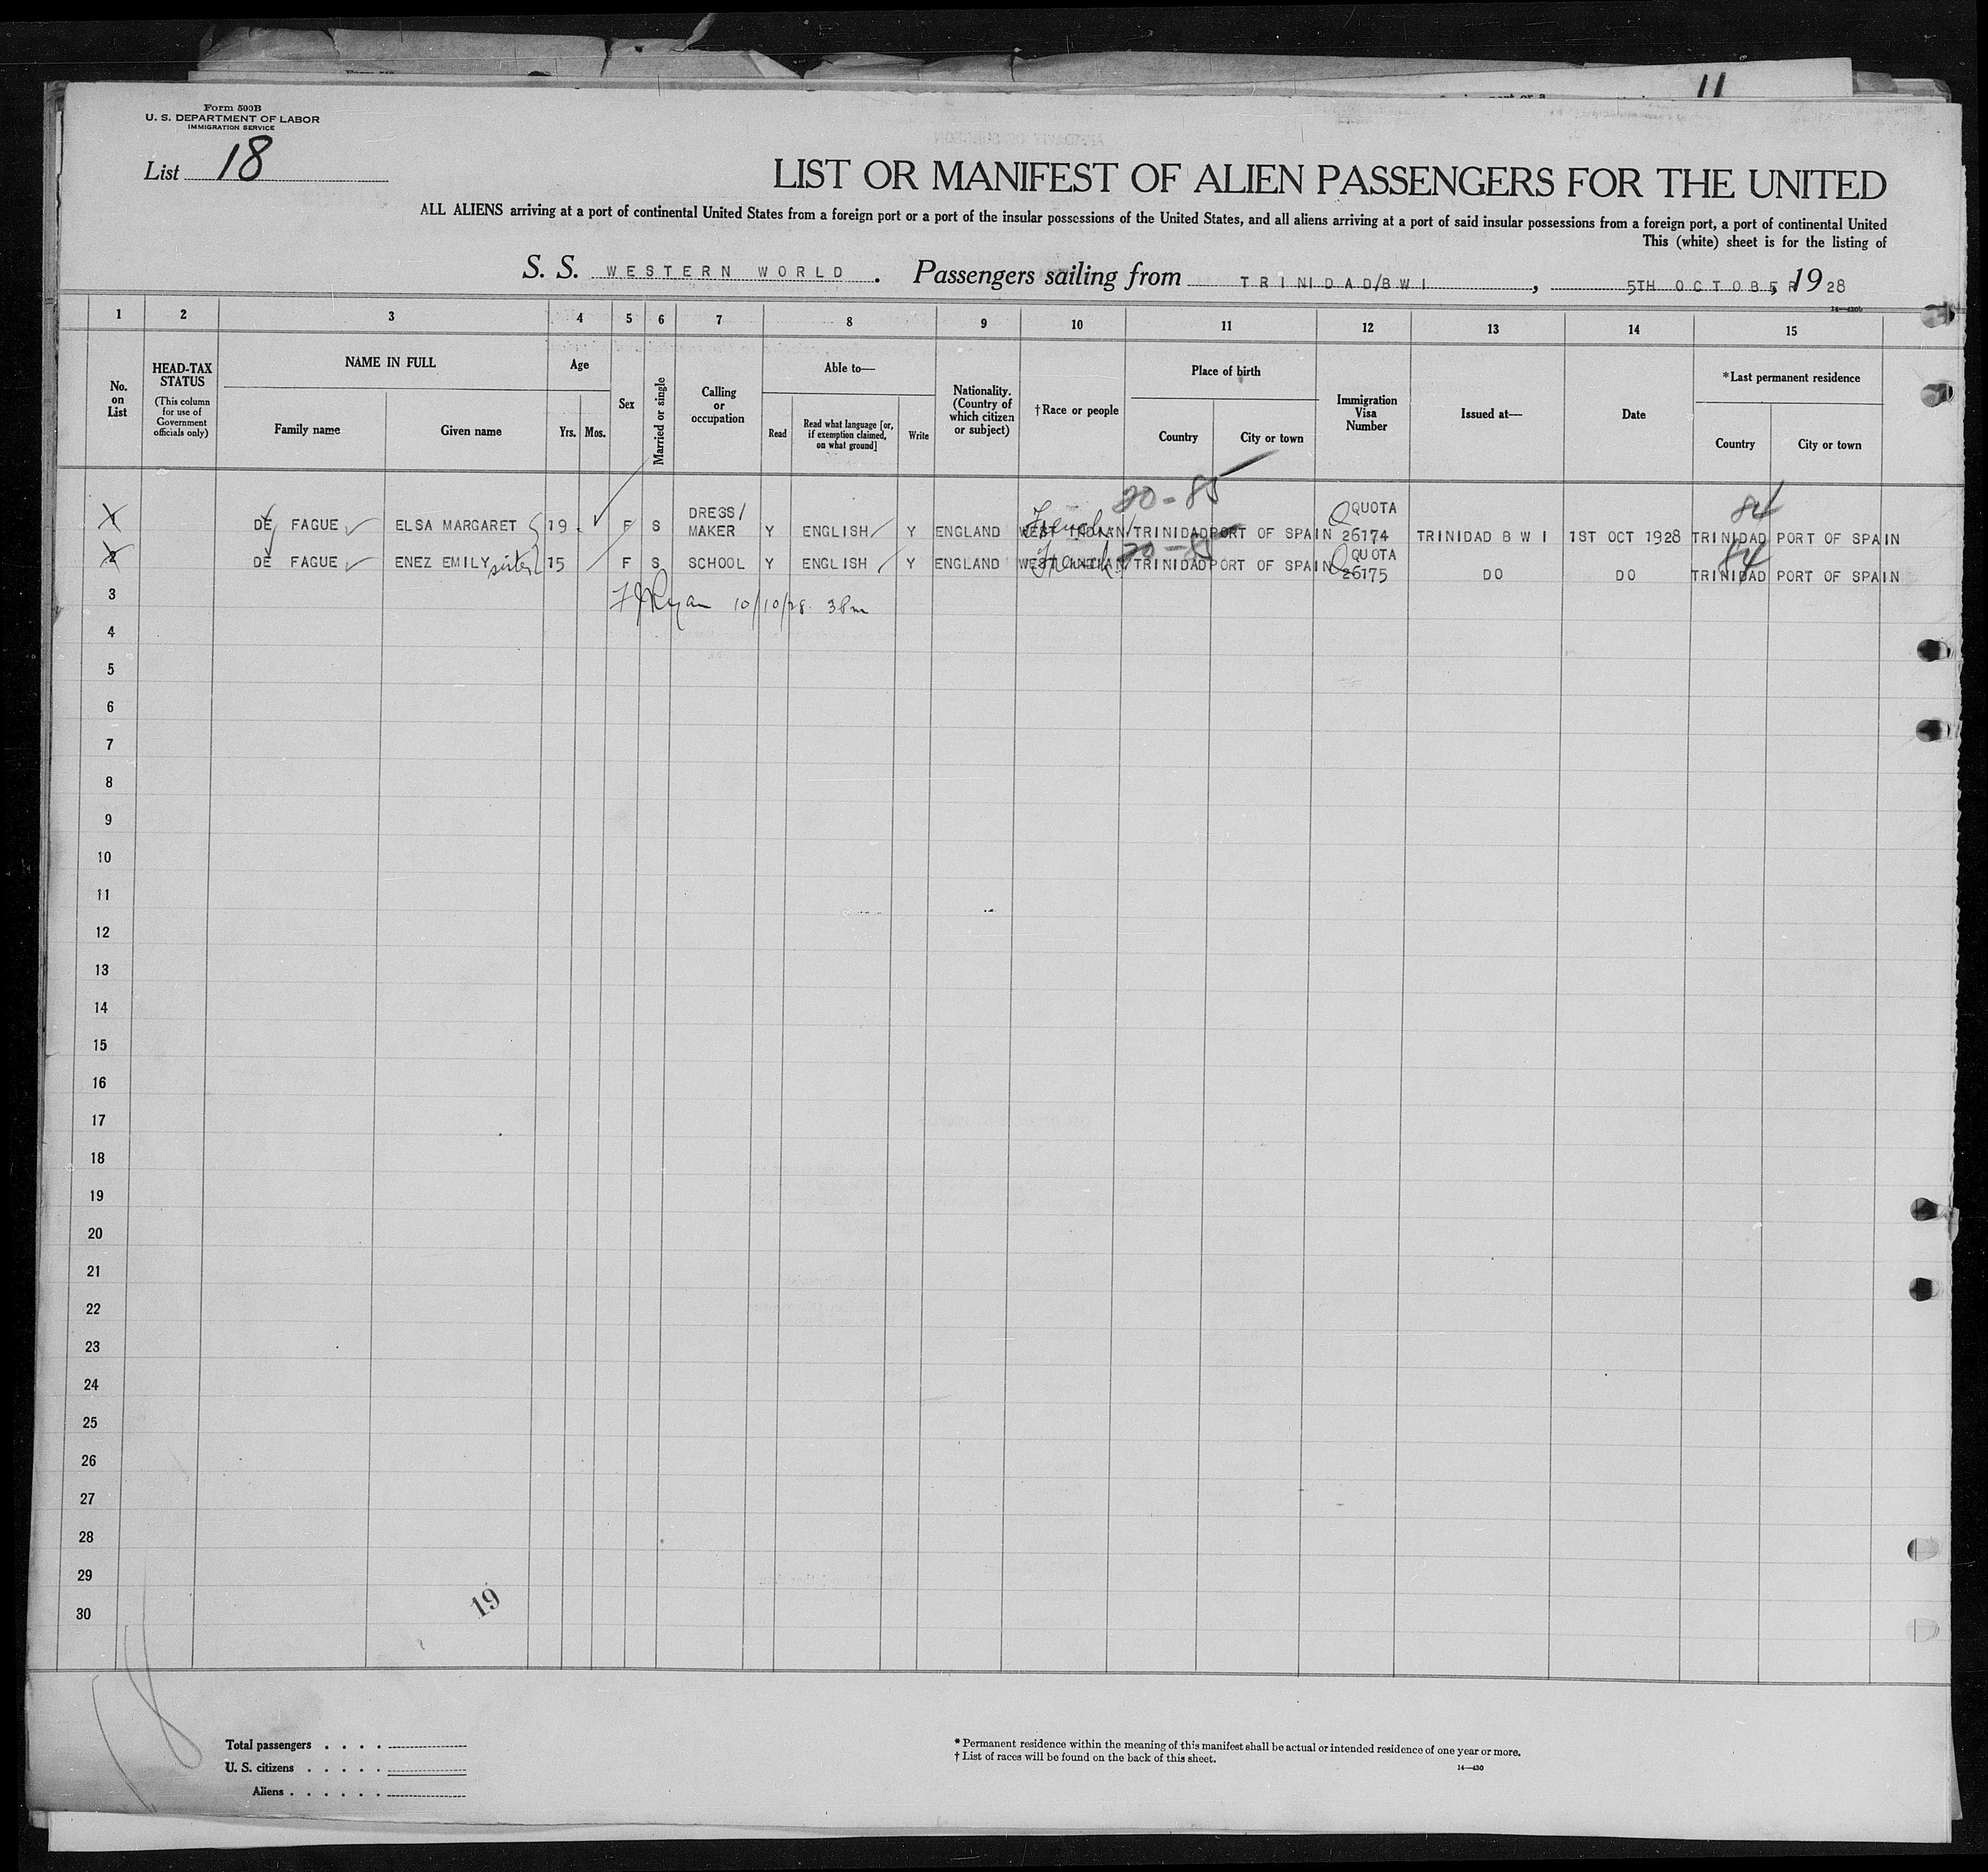 11
Form 500B
U. S. DEPARTMENT OF LABOR
IMMIGRATION SERVICE
List 18
LIST OR MANIFEST OF ALIEN PASSENGERS FOR THE UNITED
ALL ALIENS arriving at a port of continental United States from a foreign port or a port of the insular possessions of the United States, and all aliens arriving at a port of said insular possessions from a foreign port, a port of continental United
This (white) sheet is for the listing of
S. S. WESTERN WORLD . Passengers sailing from TRINIDAD/BWI , 5TH OCTOBER , 1928
14—430b
1 2 3 4 5 6 7 8 9 10 11 12 13 14 15
No. on List
HEAD-TAX STATUS
(This column for use of Government officials only)
NAME IN FULL
Family name Given name
Age
Yrs. Mos.
Sex
Married or single
Calling or occupation
Able to—
Read
Read what language [or, if exemption claimed, on what ground]
Write
Nationality. (Country of which citizen or subject)
†Race or people
Place of birth
Country City or town
Immigration Visa Number
Issued at—
Date
*Last permanent residence
Country City or town
20-85 84
1 DE FAGUE ELSA MARGARET 19 F S DRESS/ MAKER Y ENGLISH Y ENGLAND WEST INDIAN French TRINIDAD PORT OF SPAIN QUOTA 26174 TRINIDAD B W I 1ST OCT 1928 TRINIDAD PORT OF SPAIN
20-85 84
2 DE FAGUE ENEZ EMILY sister 15 F S SCHOOL Y ENGLISH Y ENGLAND WEST INDIAN French TRINIDAD PORT OF SPAIN QUOTA 26175 DO DO TRINIDAD PORT OF SPAIN
3 Ryan 10/10/28 3 Pm
4
5
6
7
8
9
10
11
12
13
14
15
16
17
18
19
20
21
22
23
24
25
26
27
28
29
30
19
18
Total passengers . . . .
U. S. citizens . . . . .
Aliens . . . . . .
* Permanent residence within the meaning of this manifest shall be actual or intended residence of one year or more.
† List of races will be found on the back of this sheet.
14—430